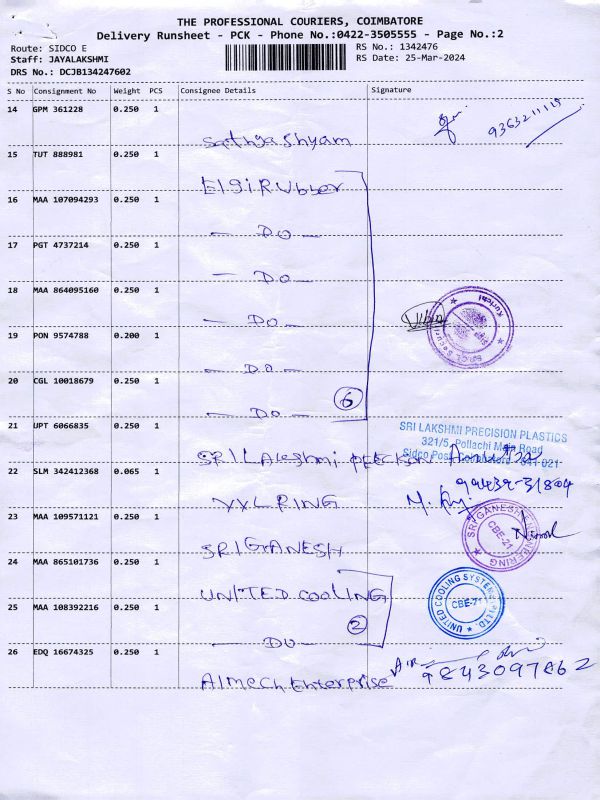 THE PROFESSIONAL COURIERS, COIMBATORE
Delivery Runsheet - PCK - Phone No.:0422-3505555 - Page No.:2
Route: SIDCO E
Staff: JAYALAKSHMI
DRS No.: DCJB134247602
RS No.: 1342476
RS Date: 25-Mar-2024
S No Consignment No Weight PCS Consignee Details Signature
14 GPM 361228 0.250 1
9363211119
Sathya Shyam
15 TUT 888981 0.250 1
Elgi Rubber
16 MAA 107094293 0.250 1
— DO —
17 PGT 4737214 0.250 1
— DO —
18 MAA 864095160 0.250 1
— DO —
19 PON 9574788 0.200 1
— DO —
20 CGL 10018679 0.250 1
— DO — 6
21 UPT 6066835 0.250 1
SRI LAKSHMI PRECISION PLASTICS
321/5, Pollachi Main Road
Sidco Post, Coimbatore - 641 021
SRI Lakshmi
22 SLM 342412368 0.065 1
99432-31804
VXL RING
23 MAA 109571121 0.250 1
SRI GANESH ENGINEERING
CBE-21
SRI GANESH
24 MAA 865101736 0.250 1
UNITED COOLING SYSTEMS
UNITED COOLING
25 MAA 108392216 0.250 1
— DO — 2
26 EDQ 16674325 0.250 1
9843097862
Almech Enterprise